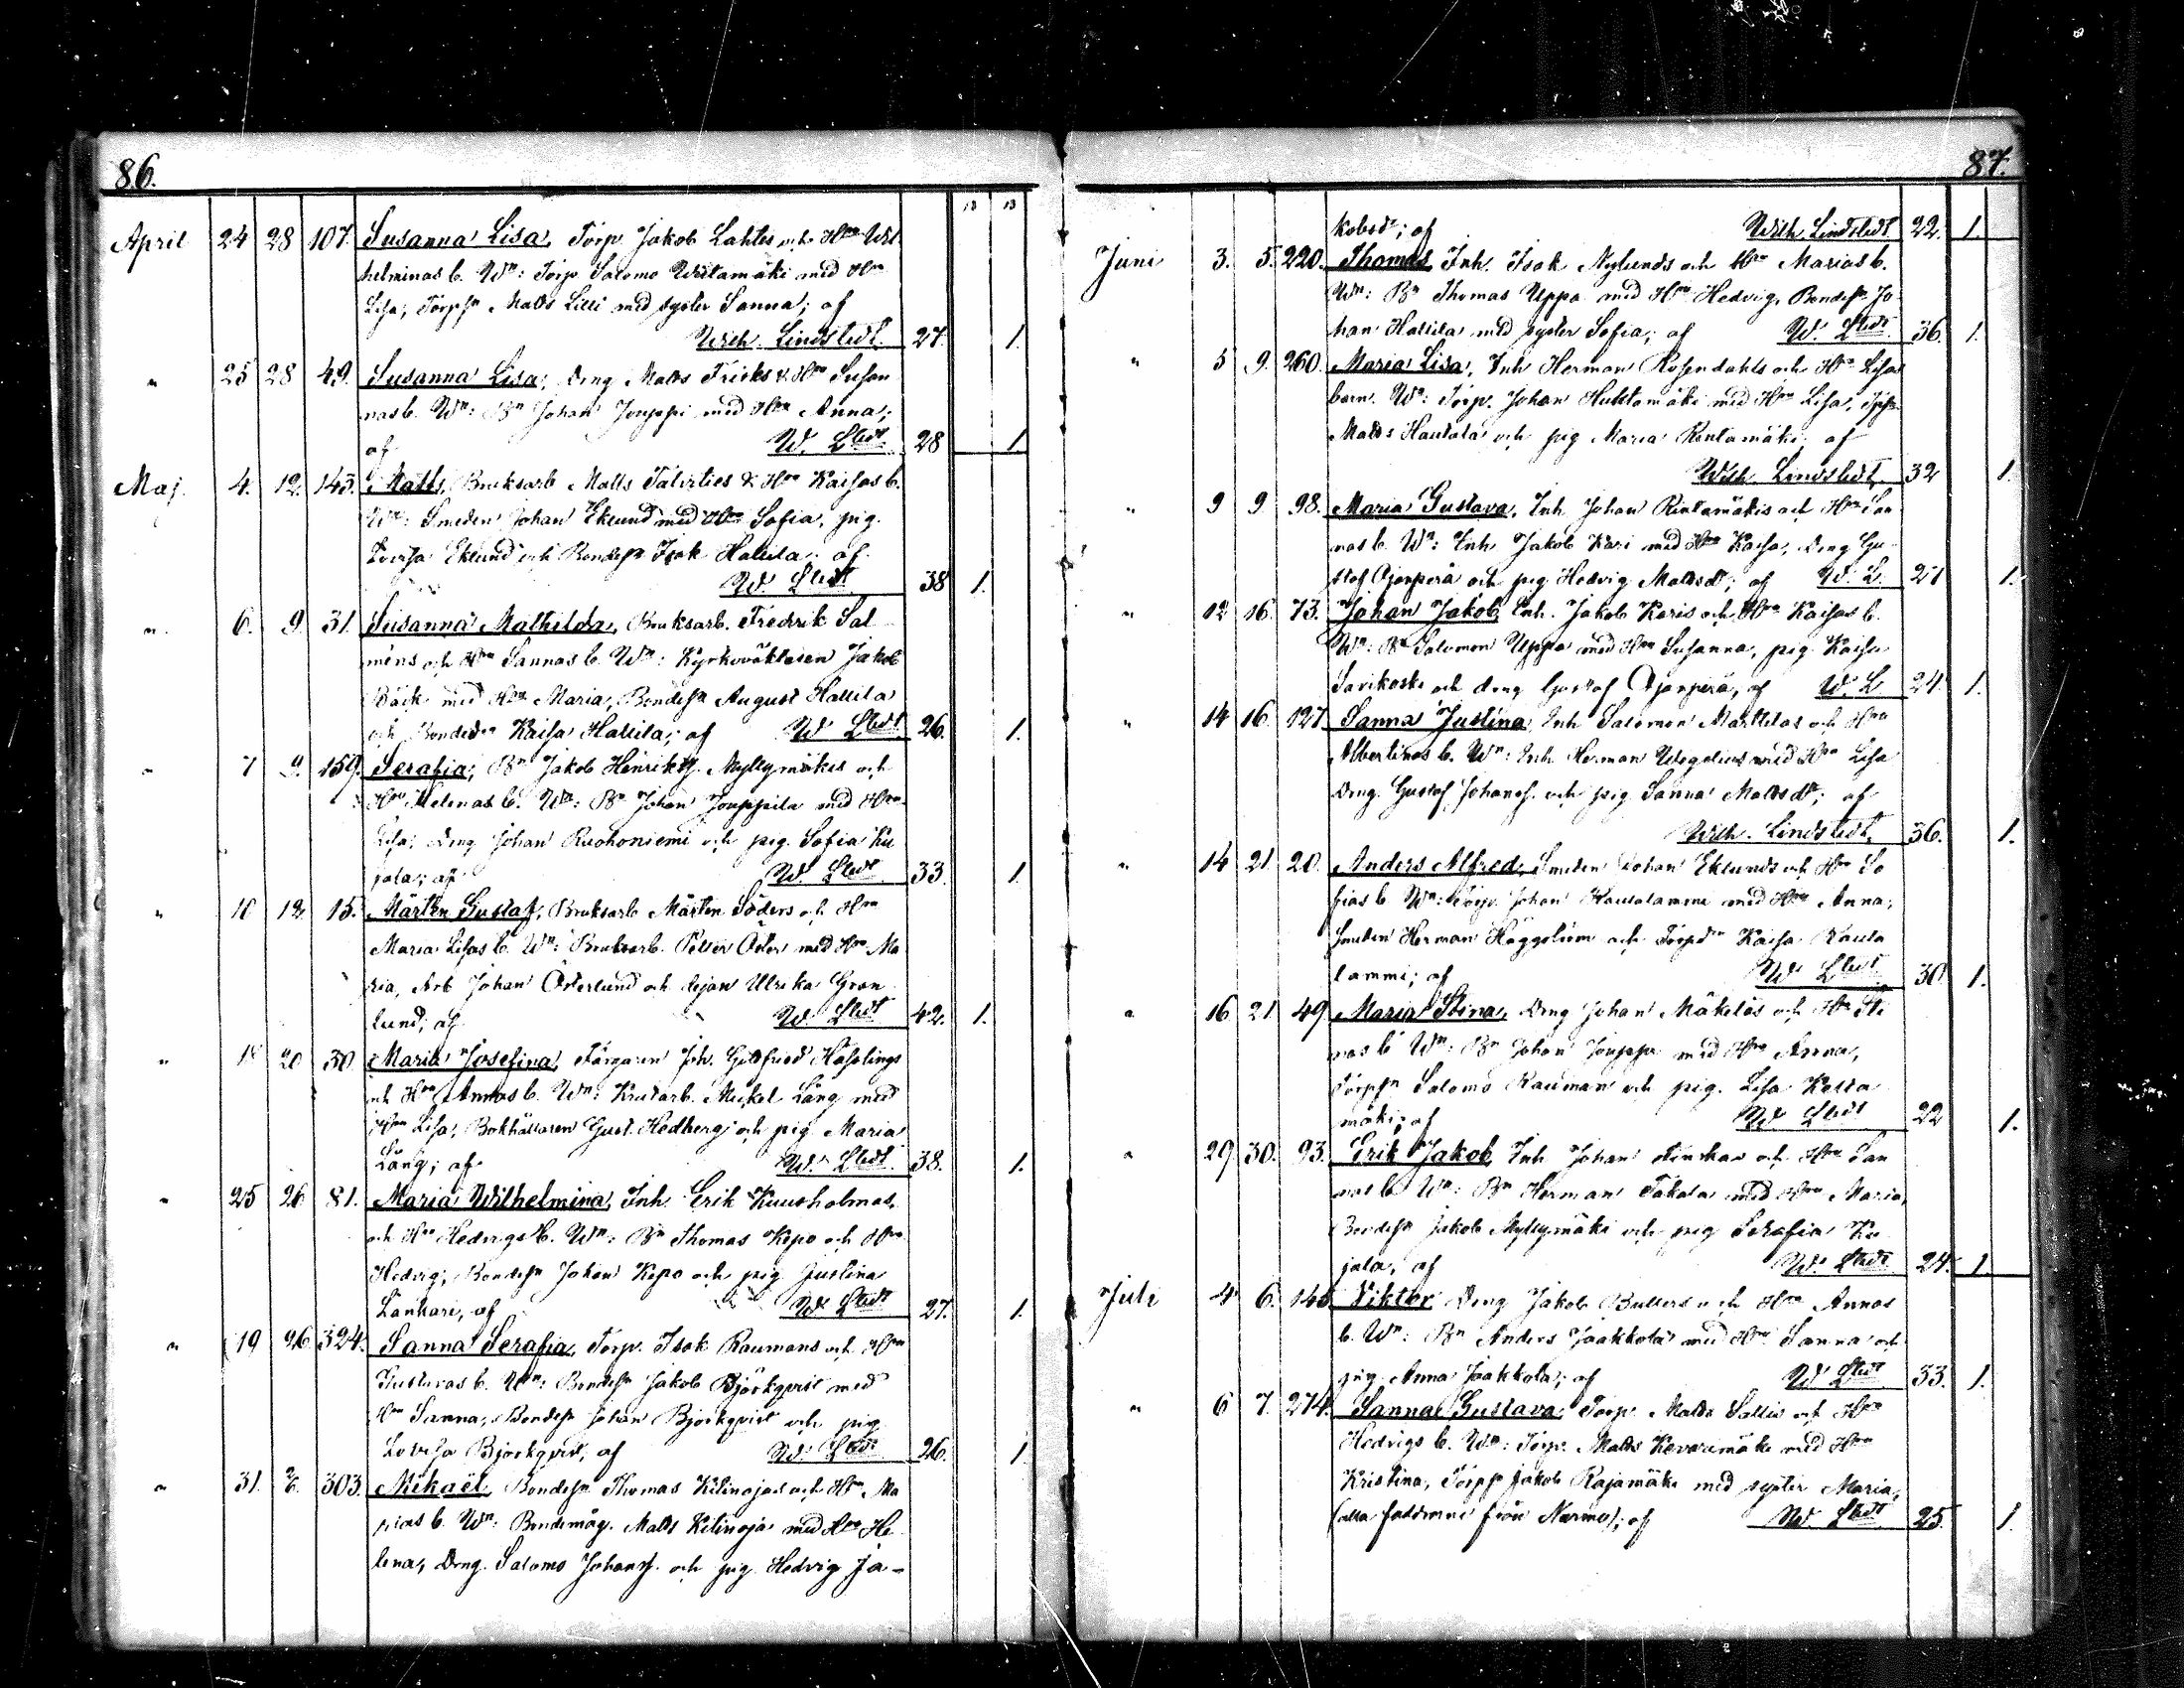 86.
April 24 28 107. Susanna Lisa, Torp. Jakob Lahtes och Hu Wil
helminas b. Wn: Torp Salomo Wiitamäki med Hu
Lisa, Torpsn Matts Lilli med syster Sanna; af
Wilh. Lindstedt. 27. 1.
" 25 28 49. Susanna Lisa, Dreng Matts Fricks & Hu Susan
nas b. Wn: Bn Johan Jouppi med Hu Anna;
af W. Lstedt 28 1.
Maj. 4. 12. 143. Matts, Bruksarb Matts & Hu Kaisas b.
Wn: Smeden Johan Eklund med Hu Sofia, pig.
Lovisa Eklund och Bondesn Isak Hallila; af
W. Lstedt 38 1.
" 6. 9. 31. Susanna Mathilda, Bruksarb. Fredrik Sal
méns och Hu Sannas b. Wn: Kyrkováktaren Jakob
Bäck med Hu Maria, Bondesn August Hallila
och Bondedr Kaisa Hallila; af W. Lstedt. 26. 1.
" 7 9. 159. Serafia, Bn Jakob Henriks. Myllymäkis och
Hu Helenas b. Wn: Bn Johan Jouppila med Hu
Lisa, Dreng Johan Ruohoniemi och pig. Sofia Ku
jala; af W. Lstedt 33. 1.
" 10 12. 15. Mårten Gustaf, Bruksarb Mårten Söders och Hu
Maria Lisas b. Wn: Bruksarb. Petter Öster med Hu Ma
ria, Arb Johan Österlund och Ulrika Grön
lund, af W. Lstedt 42. 1.
" 18 20 30 Maria Josefina, Färgaren Joh. Gottfried Hässlings
och Hu Annas b. Wn: Krutarb. Mickel Lång med
Hu Lisa, Bokhållaren Gust. Hedberg och pig. Maria
Lång; af W. Lstedt 38. 1.
" 25 26 81. Maria Wilhelmina, Inh. Erik Kuusholmas
och Hu Hedvigs b. Wn: Bn Thomas Kepo och Hu
Hedvig, Bondesn Johan Kepo och pig Justina
Lankari, af W. Lstedt 27. 1.
" 19 26. 324. Sanna Serafia, Torp. Isak Raumans och Hu
Gustavas b. Wn: Bondesn Jakob Björkqvist med
Hu Sanna, Bondesn Johan Björkqvist och pig
Lovisa Björkqvist, af W. Lstedt 26. 1.
" 31. 2/6. 303. Mikaël, Bondesn Thomas Kitinojas och Hu Ma
rias b. Wn: Bondemåg. Matts Kitinoja med Hu He
lena, Dreng. Salomo Johans. och pig Hedvig Ja-
87.
kobsdr; af Wilh. Lindstedt 22. 1.
Juni 3. 5. 220. Thomas, Inh. Isak Nylunds och Hu Marias b.
Wn: Bn Thomas Uppa med Hu Hedvig, Bondesn Jo
han Hallila med syster Sofia; af W. Lstedt. 36. 1.
" 5 9. 260. Maria Lisa, Inh Herman Rosendahls och Hu Lisas
barn. Wn: Torp. Johan Huhtamäki med Hu Lisa,
Matts Hautala och pig Maria Rintamäki; af
Wilh Lindstedt. 32 1.
" 9 9 98. Maria Gustava, Inh Johan Rintamäkis och Hu San
nas b. Wn: Inh Jakob Kari med Hu Kaisa, Dreng Gu
staf Ojanperä och pig Hedvig Mattsdr; af W. L. 27 1.
" 12 16. 73. Johan Jakob, Inh. Jakob Karis och Hu Kaisas b.
Wn: Bn Salomon Uppa med Hu Susanna, pig. Kaisa
Savikoski och dreng Gustaf Ojanperä, af W. L 24. 1.
" 14 16. 127. Sanna Justina, Inh Salomon Marttilas och Hu
Albertinas b. Wn: Inh. Herman Wegelius med Hu Lisa
Dreng Gustaf Johans. och pig Sanna Mattsdr; af
Wilh. Lindstedt. 36. 1.
" 14 21 20. Anders Alfred, Smeden Johan Eklunds och Hu So
fias b Wn: Torp. Johan Kautalammi med Hu Anna,
Smeden Herman Häggblom och Torpdr Kaisa Kauta
lammi; af W. Lstedt 30. 1.
" 16 21 49 Maria Stina, Dreng Johan Mäkeläs och Hu Sti
nas b Wn: Bn Johan Jouppi med Hu Anna,
Torpsn Salomo Rauman och pig. Lisa Kotta
mäki; af W. Lstedt 22 1.
" 29 30. 93. Erik Jakob, Inh Johan och Hu San
nas b Wn: Bn Herman Takala med Hu Maria,
Bondesn Jakob Myllymäki och pig Serafia Ku
jala, af W. Lstedt 24. 1.
Juli 4 6. 145 Viktor, Dreng Jakob Bullers och Hu Annas
b. Wn: Bn Anders Jaakkola med Hu Sanna och
pig Anna Jaakkola; af W. Lstedt 33. 1.
" 6 7. 274. Sanna Gustava, Torp. Matts Sallis och Hu
Hedvigs b. Wn: Torp. Matts Kevarimäki med Hu
Kristina, Torpsn Jakob Rajamäki med syster Maria,
(alla faddrarne från Närmo); af W. Lstedt 25. 1.